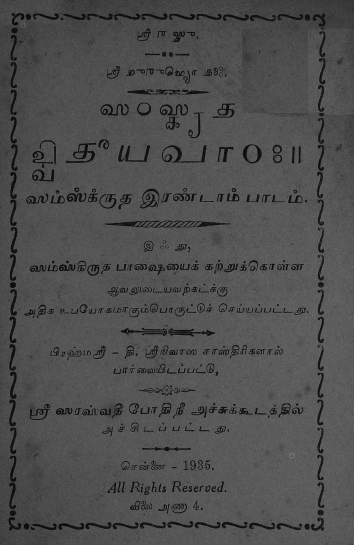 ஸம்ஸ்க்ருத இரண்டாம் பாடம்.
இஃது,
ஸம்ஸ்கிருத பாஷையைக் கற்றுக்கொள்ள
ஆவலுடையவற்கட்க்கு
அதிக உபயோகமாகும்பொருட்டுச் செய்யப்பட்டது.
பிரஹ்மஸ்ரீ - தி. ஸ்ரீநிவாஸ சாஸ்திரிகளால்
பார்வையிடப்பட்டு,
ஸ்ரீ ஸரஸ்வதீ போதிநீ அச்சுக்கூடத்தில்
அச்சிடப்பட்டது.
சென்னை - 1935.
All Rights Reserved.
விலை அணா 4.